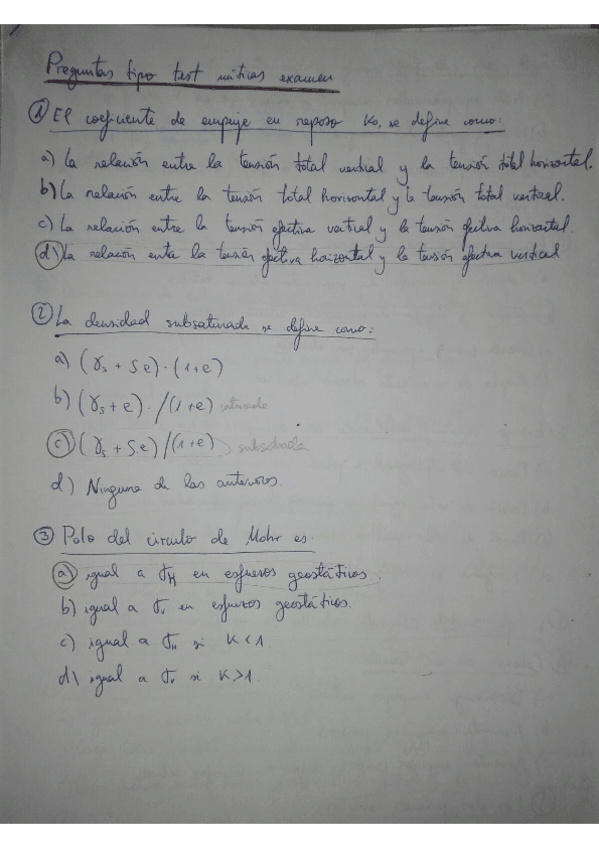 Preguntas tipo test míticas examen
① El coeficiente de empuje en reposo K₀, se define como:
a) La relación entre la tensión total vertical y la tensión total horizontal.
b) La relación entre la tensión total horizontal y la tensión total vertical.
c) La relación entre la tensión efectiva vertical y la tensión efectiva horizontal.
d) La relación entre la tensión efectiva horizontal y la tensión efectiva vertical
② La densidad subsaturada se define como:
a) (γs + S.e) · (1+e)
b) (γs + e) · /(1+e) saturada
c) (γs + S.e) /(1+e) subsaturada
d) Ninguna de las anteriores.
③ Polo del círculo de Mohr es:
a) igual a σH en esfuerzos geostáticos.
b) igual a σv en esfuerzos geostáticos.
c) igual a σH si K<1
d) igual a σv si K>1.